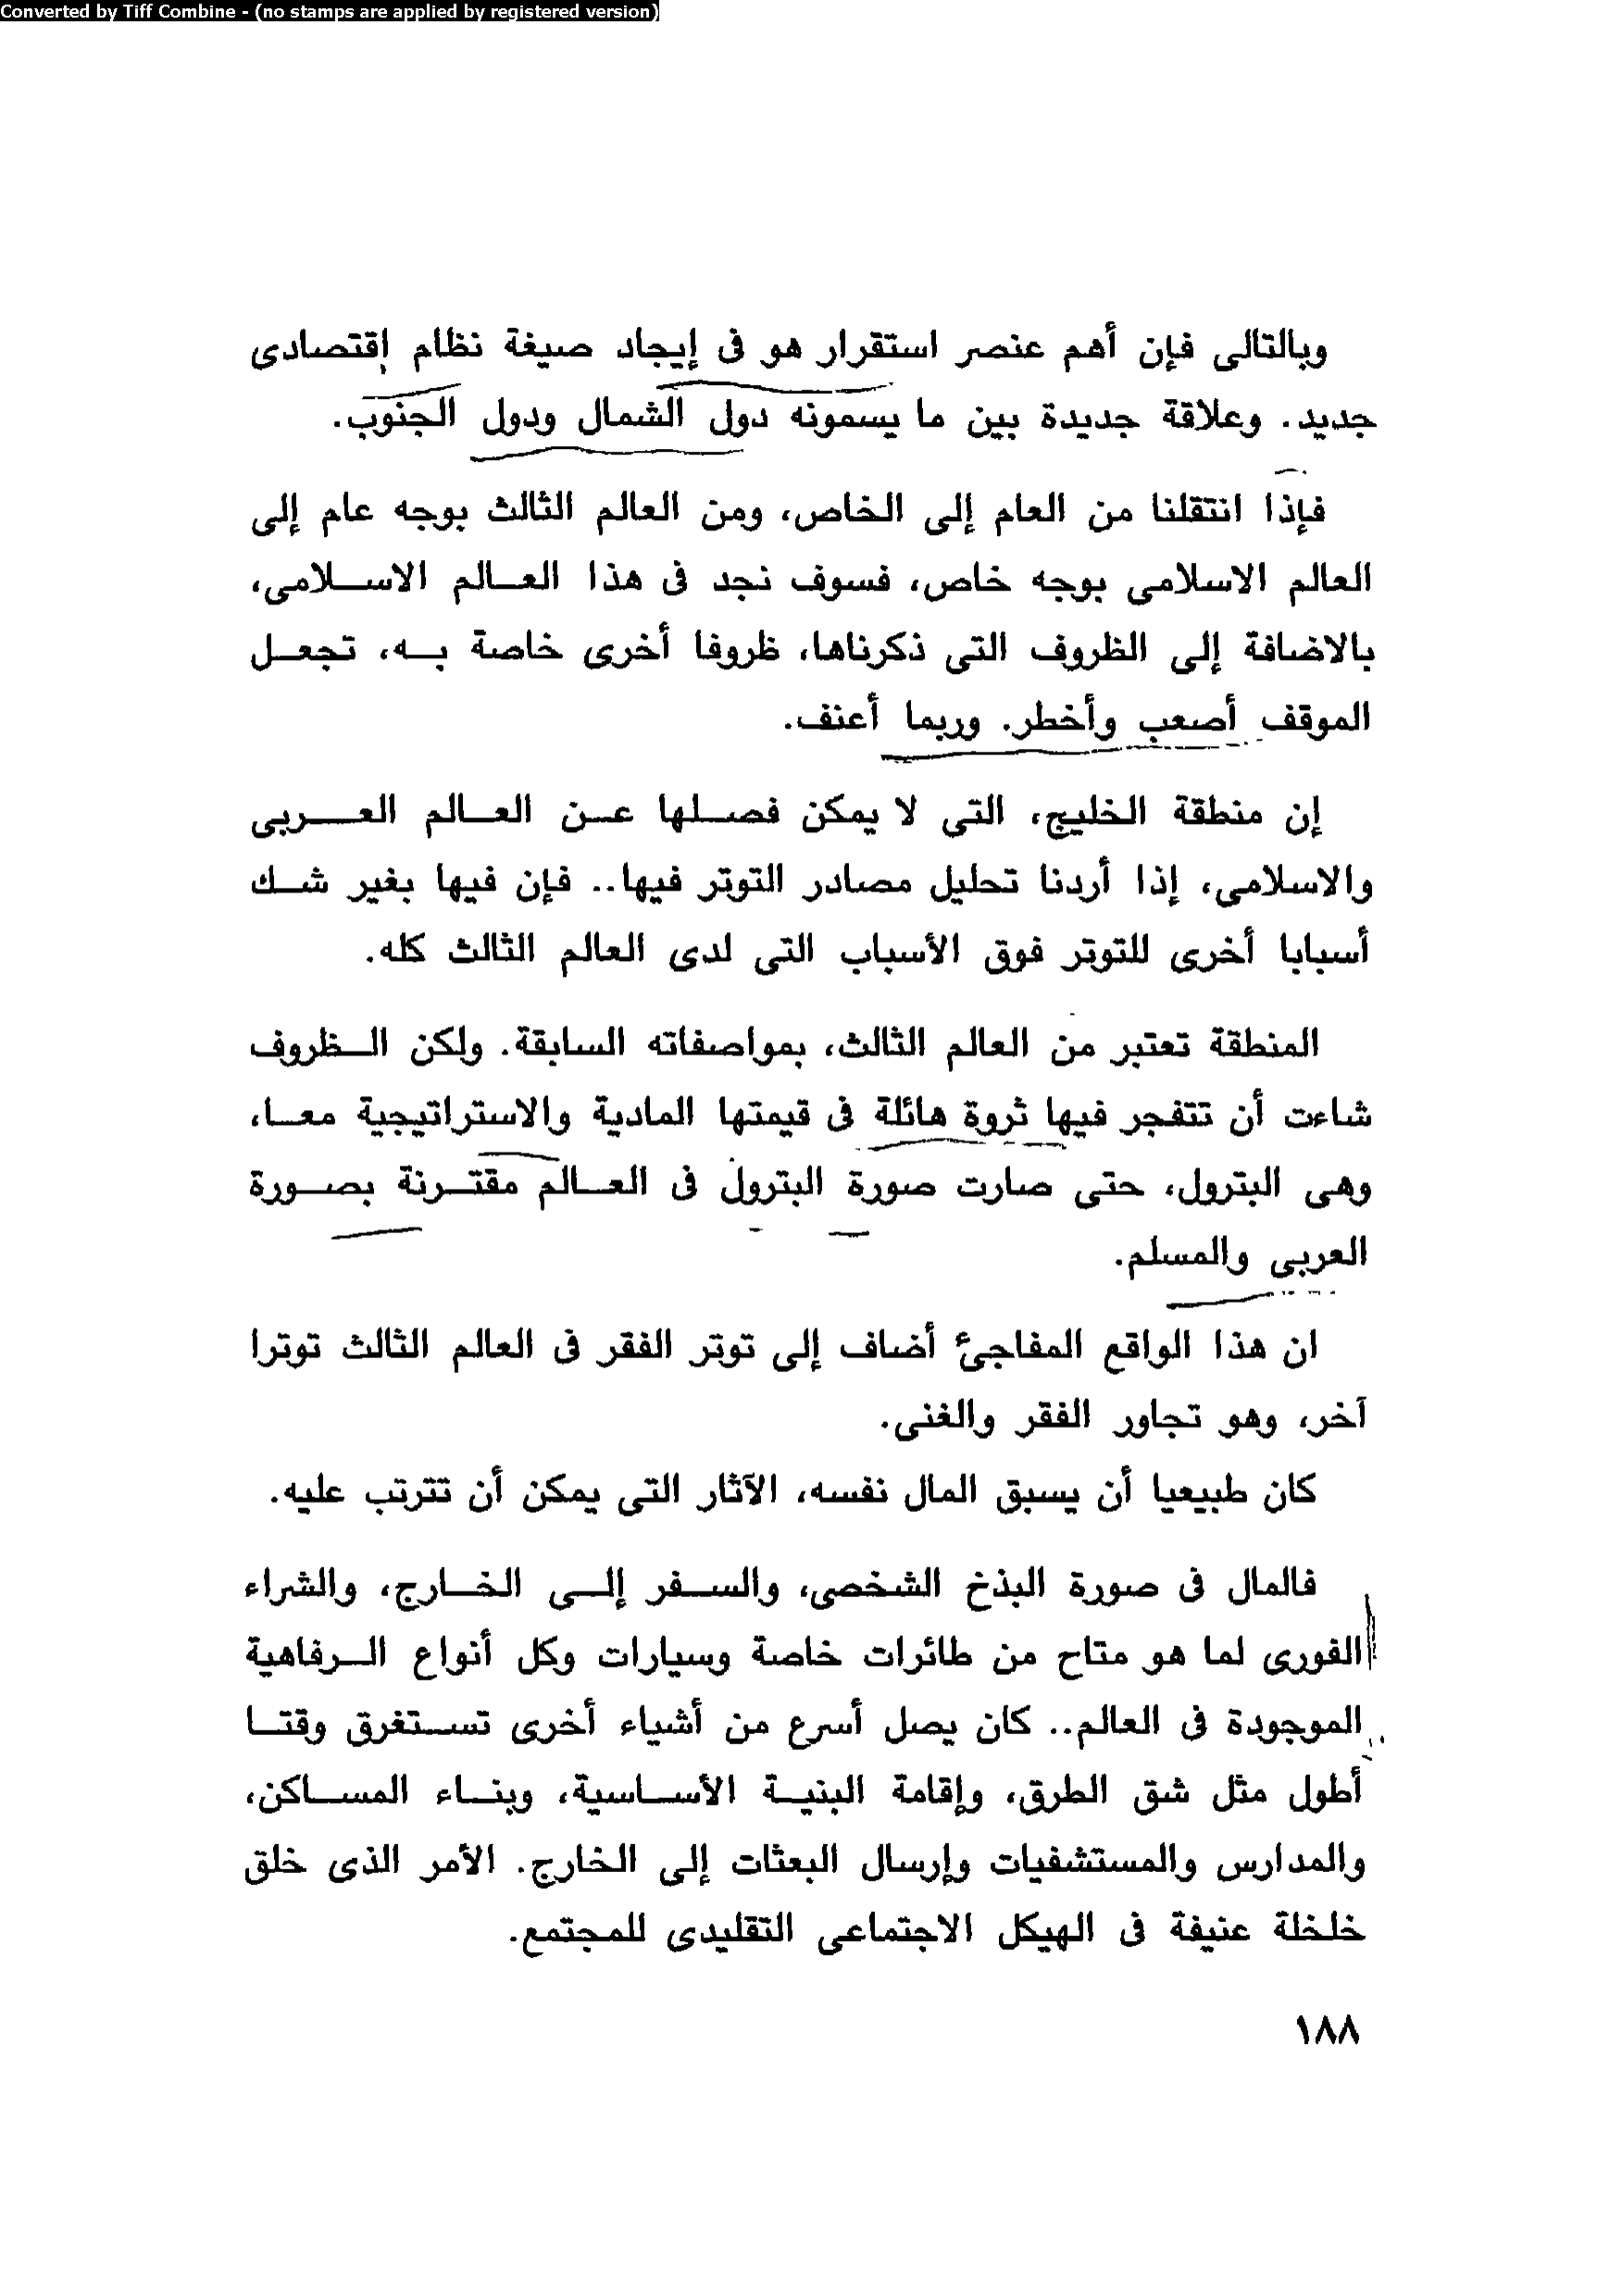 Converted by Tiff Combine - (no stamps are applied by registered version)
وبالتالى فإن أهم عنصر استقرار هو فى إيجاد صيغة نظام إقتصادى
جديد. وعلاقة جديدة بين ما يسمونه دول الشمال ودول الجنوب.
فإذا انتقلنا من العام إلى الخاص، ومن العالم الثالث بوجه عام إلى
العالم الاسلامى بوجه خاص، فسوف نجد فى هذا العـالم الاسـلامى،
بالاضافة إلى الظروف التى ذكرناها، ظروفا أخرى خاصة بـه، تجعـل
الموقف أصعب وأخطر. وربما أعنف.
إن منطقة الخليج، التى لا يمكن فصـلها عـن العـالم العـربى
والاسلامى، إذا أردنا تحليل مصادر التوتر فيها.. فإن فيها بغير شـك
أسبابا أخرى للتوتر فوق الأسباب التى لدى العالم الثالث كله.
المنطقة تعتبر من العالم الثالث، بمواصفاته السابقة. ولكن الـظروف
شاءت أن تتفجر فيها ثروة هائلة فى قيمتها المادية والاستراتيجية معـا،
وهى البترول، حتى صارت صورة البترول فى العـالم مقتـرنة بصـورة
العربى والمسلم.
ان هذا الواقع المفاجئ أضاف إلى توتر الفقر فى العالم الثالث توترا
آخر، وهو تجاور الفقر والغنى.
كان طبيعيا أن يسبق المال نفسه، الآثار التى يمكن أن تترتب عليه.
فالمال فى صورة البذخ الشخصى، والسـفر إلـى الخـارج، والشراء
الفورى لما هو متاح من طائرات خاصة وسيارات وكل أنواع الـرفاهية
الموجودة فى العالم.. كان يصل أسرع من أشياء أخرى تسـتغرق وقتـا
أطول مثل شق الطرق، وإقامة البنيـة الأسـاسية، وبنـاء المسـاكن،
والمدارس والمستشفيات وإرسال البعثات إلى الخارج. الأمر الذى خلق
خلخلة عنيفة فى الهيكل الاجتماعى التقليدى للمجتمع.
١٨٨